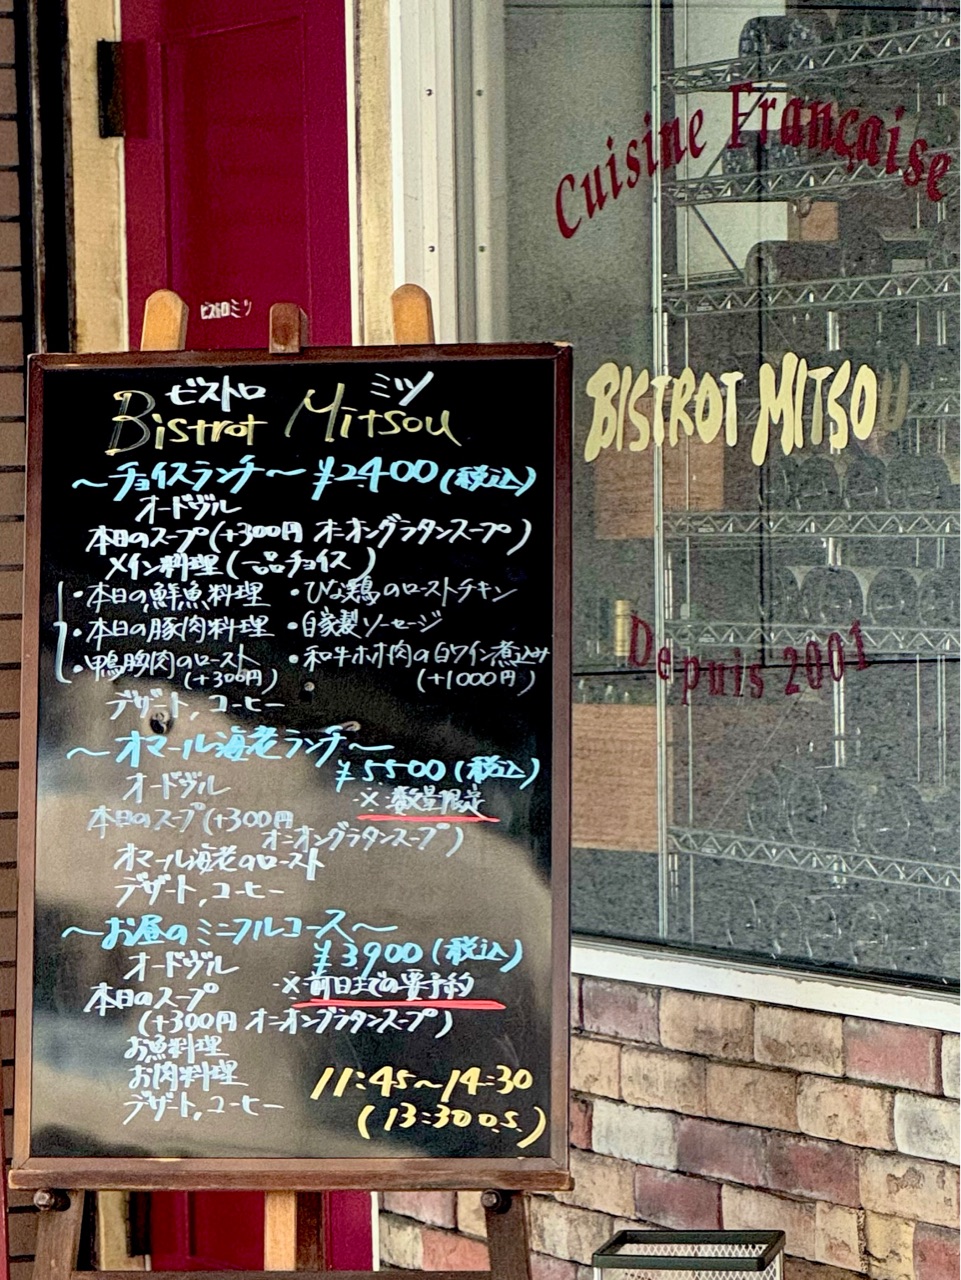 Cuisine Française
BISTROT MITSOU
Depuis 2001
ビストロミツ
ビストロ ミツ
Bistrot Mitsou
～チョイスランチ～ ¥2400(税込)
オードヴル
本日のスープ(+300円 オニオングラタンスープ)
メイン料理(一品チョイス)
・本日の鮮魚料理 ・ひな鶏のローストチキン
・本日の豚肉料理 ・自家製ソーセージ
・鴨胸肉のロースト ・和牛ホホ肉の白ワイン煮込み
(+300円) (+1000円)
デザート,コーヒー
～オマール海老ランチ～
¥5500(税込)
オードヴル
※数量限定
本日のスープ(+300円
オニオングラタンスープ)
オマール海老のロースト
デザート,コーヒー
～お昼のミニフルコース～
¥3900(税込)
オードヴル
※前日までの要予約
本日のスープ
(+300円 オニオングラタンスープ)
お魚料理
お肉料理
デザート,コーヒー
11:45～14:30
(13:30 o.s.)